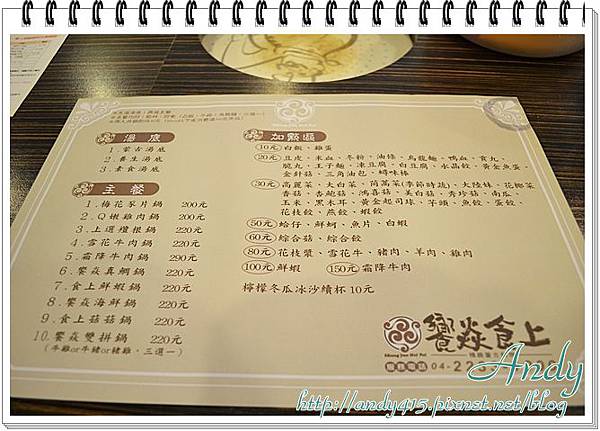 Andy
湯底
1. 蒙古湯底
2. 養生湯底
3. 素食湯底
主餐
1. 梅花豕片鍋 200元
2. Q嫩雞肉鍋 200元
3. 上選燈根鍋 220元
4. 雪花牛肉鍋 220元
5. 霜降牛肉鍋 290元
6. 饗焱真鯛鍋 220元
7. 食上鮮蝦鍋 220元
8. 饗焱海鮮鍋 220元
9. 食上菇菇鍋 220元
10. 饗焱雙拼鍋 220元
(牛雞or牛豬or豬雞，三選一)
加點區
10元 白飯、雞蛋
20元 豆皮、米血、冬粉、油條、烏龍麵、鴨血、貢丸、
脆丸、王子麵、凍豆腐、白豆腐、水晶餃、黃金魚蛋
金針菇、三角油包、蟳味棒
30元 高麗菜、大白菜、茼萵菜(季節時蔬)、大陸妹、花椰菜
香菇、杏鮑菇、鴻喜菇、美白菇、秀珍菇、南瓜
玉米、黑木耳、黃金起司球、芋頭、魚餃、蛋餃、
花枝餃、燕餃、蝦餃
50元 蛤仔、鮮蚵、魚片、白蝦
60元 綜合菇、綜合餃
80元 花枝漿、雪花牛、豬肉、羊肉、雞肉
100元 鮮蝦 150元 霜降牛肉
檸檬冬瓜冰沙續杯 10元
饗焱食上
04-22
Andy
http://andy415.pixnet.net/blog